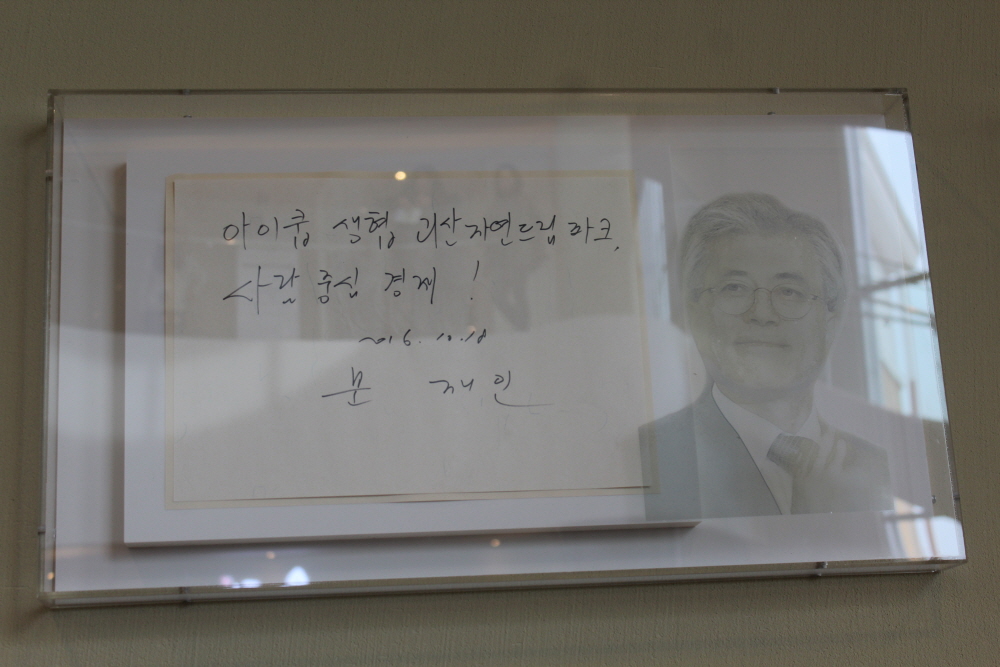 아이쿱 생협 괴산자연드림파크,
사람 중심 경제!
2016. 10. 18
문 재 인